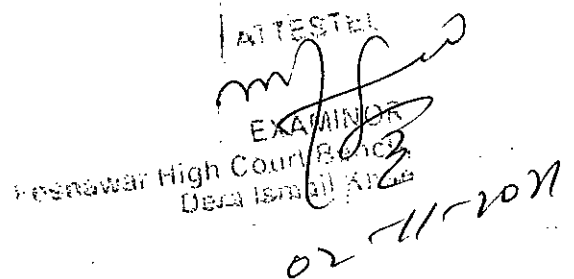 ATTESTED
EXAMINOR
Peshawar High Court Bench
Dera Ismail Khan
02-11-2021